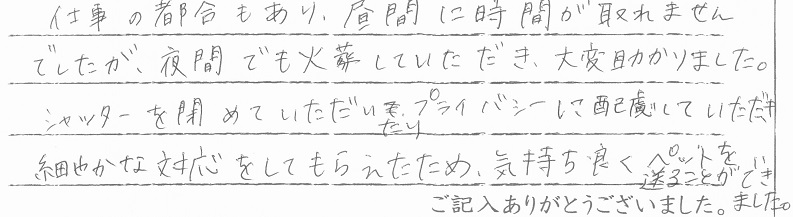 仕事の都合もあり、昼間に時間が取れません
でしたが、夜間でも火葬していただき、大変助かりました。
シャッターを閉めていただいたり、プライバシーに配慮していただき
細やかな対応をしてもらえたため、気持ち良くペットを
送ることができました。
ご記入ありがとうございました。